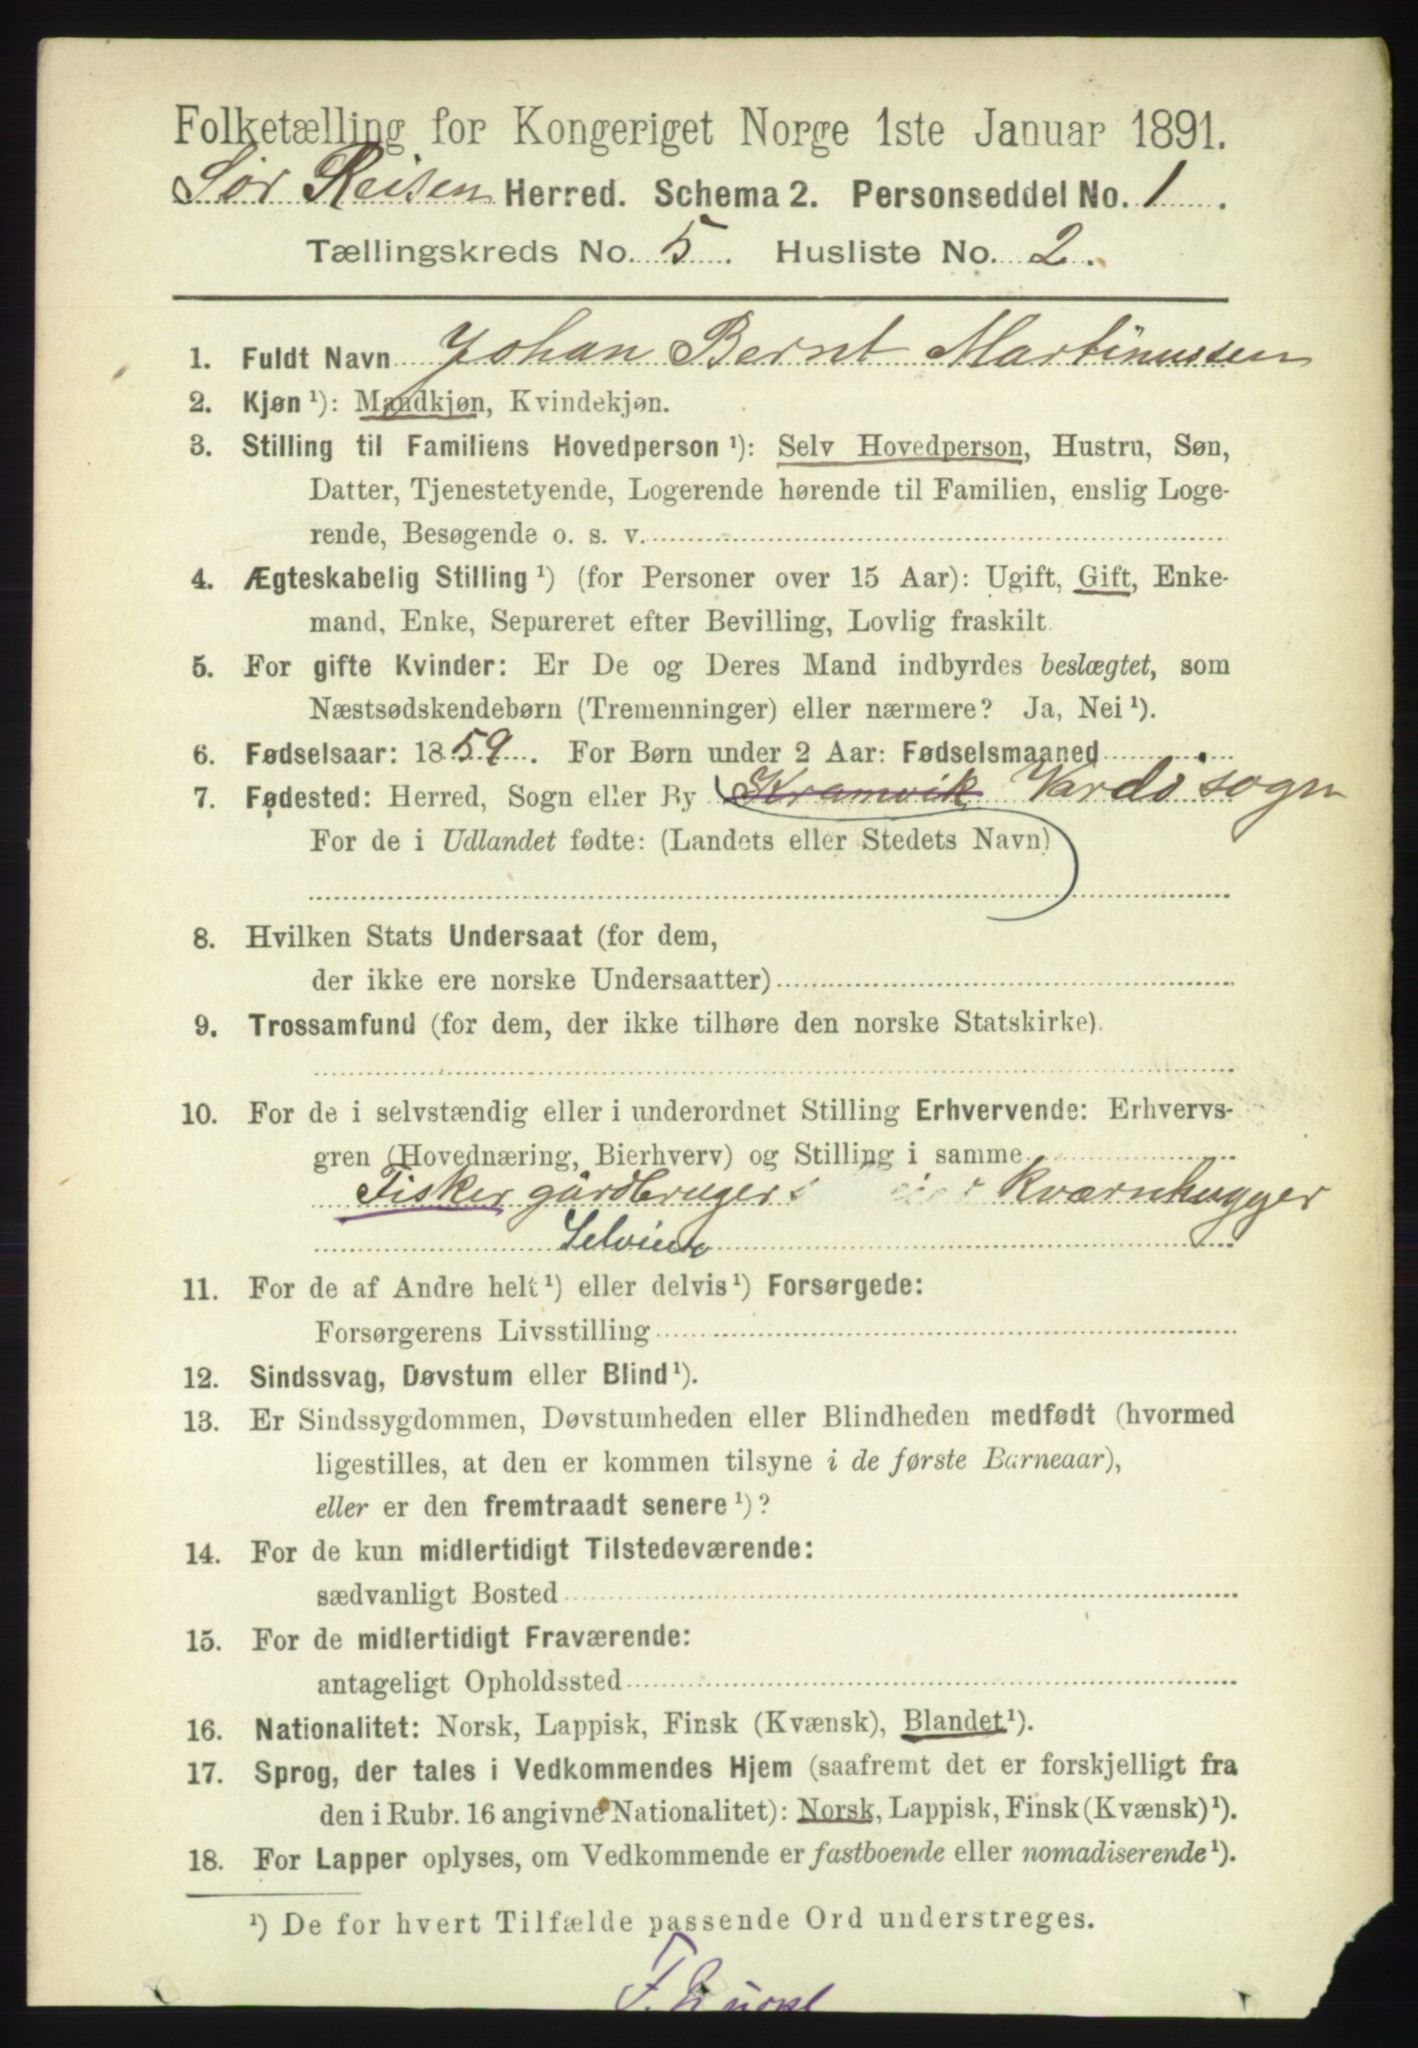 Folketælling for Kongeriget Norge 1ste Januar 1891.
Sør Reisen Herred. Schema 2. Personseddel No. 1.
Tællingskreds No. 5. Husliste No. 2.
1. Fuldt Navn Johan Bernt Martinussen
2. Kjøn ¹): Mandkjøn, Kvindekjøn.
3. Stilling til Familiens Hovedperson ¹): Selv Hovedperson, Hustru, Søn,
Datter, Tjenestetyende, Logerende hørende til Familien, enslig Loge-
rende, Besøgende o. s. v.
4. Ægteskabelig Stilling ¹) (for Personer over 15 Aar): Ugift, Gift, Enke-
mand, Enke, Separeret efter Bevilling, Lovlig fraskilt.
5. For gifte Kvinder: Er De og Deres Mand indbyrdes beslægtet, som
Næstsødskendebørn (Tremenninger) eller nærmere? Ja, Nei ¹).
6. Fødselsaar: 1859. For Børn under 2 Aar: Fødselsmaaned
7. Fødested: Herred, Sogn eller By Kramvik Vardø sogn
For de i Udlandet fødte: (Landets eller Stedets Navn)
8. Hvilken Stats Undersaat (for dem,
der ikke ere norske Undersaatter)
9. Trossamfund (for dem, der ikke tilhøre den norske Statskirke).
10. For de i selvstændig eller i underordnet Stilling Erhvervende: Erhvervs-
gren (Hovednæring, Bierhverv) og Stilling i samme
Fisker gårdbruger kværnhugger
Selveier
11. For de af Andre helt ¹) eller delvis ¹) Forsørgede:
Forsørgerens Livsstilling
12. Sindssvag, Døvstum eller Blind ¹).
13. Er Sindssygdommen, Døvstumheden eller Blindheden medfødt (hvormed
ligestilles, at den er kommen tilsyne i de første Barneaar),
eller er den fremtraadt senere ¹)?
14. For de kun midlertidigt Tilstedeværende:
sædvanligt Bosted
15. For de midlertidigt Fraværende:
antageligt Opholdssted
16. Nationalitet: Norsk, Lappisk, Finsk (Kvænsk), Blandet ¹).
17. Sprog, der tales i Vedkommendes Hjem (saafremt det er forskjelligt fra
den i Rubr. 16 angivne Nationalitet): Norsk, Lappisk, Finsk (Kvænsk) ¹).
18. For Lapper oplyses, om Vedkommende er fastboende eller nomadiserende ¹).
¹) De for hvert Tilfælde passende Ord understreges.